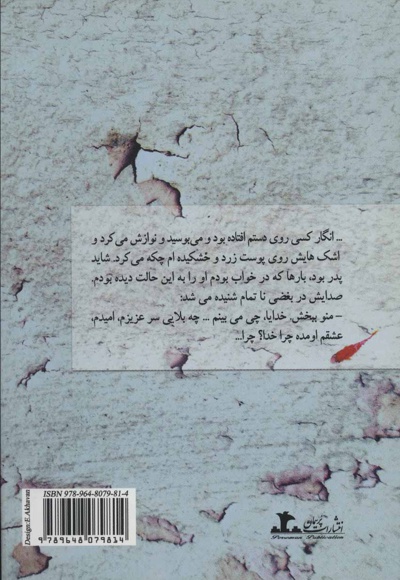 ... انگار کسی روی دستم افتاده بود و می‌بوسید و نوازش می‌کرد و
اشک هایش روی پوست زرد و خشکیده ام چکه می‌کرد. شاید
پدر بود، بارها که در خواب بودم او را به این حالت دیده بودم.
صدایش در بغضی نا تمام شنیده می شد:
- منو ببخش. خدایا، چی می بینم ... چه بلایی سر عزیزم، امیدم،
عشقم اومده چرا خدا؟ چرا...
ISBN 978-964-8079-81-4
9 789648 079814
Design: E.Akhavan
انتشارات پرسمان
Porseman Publication